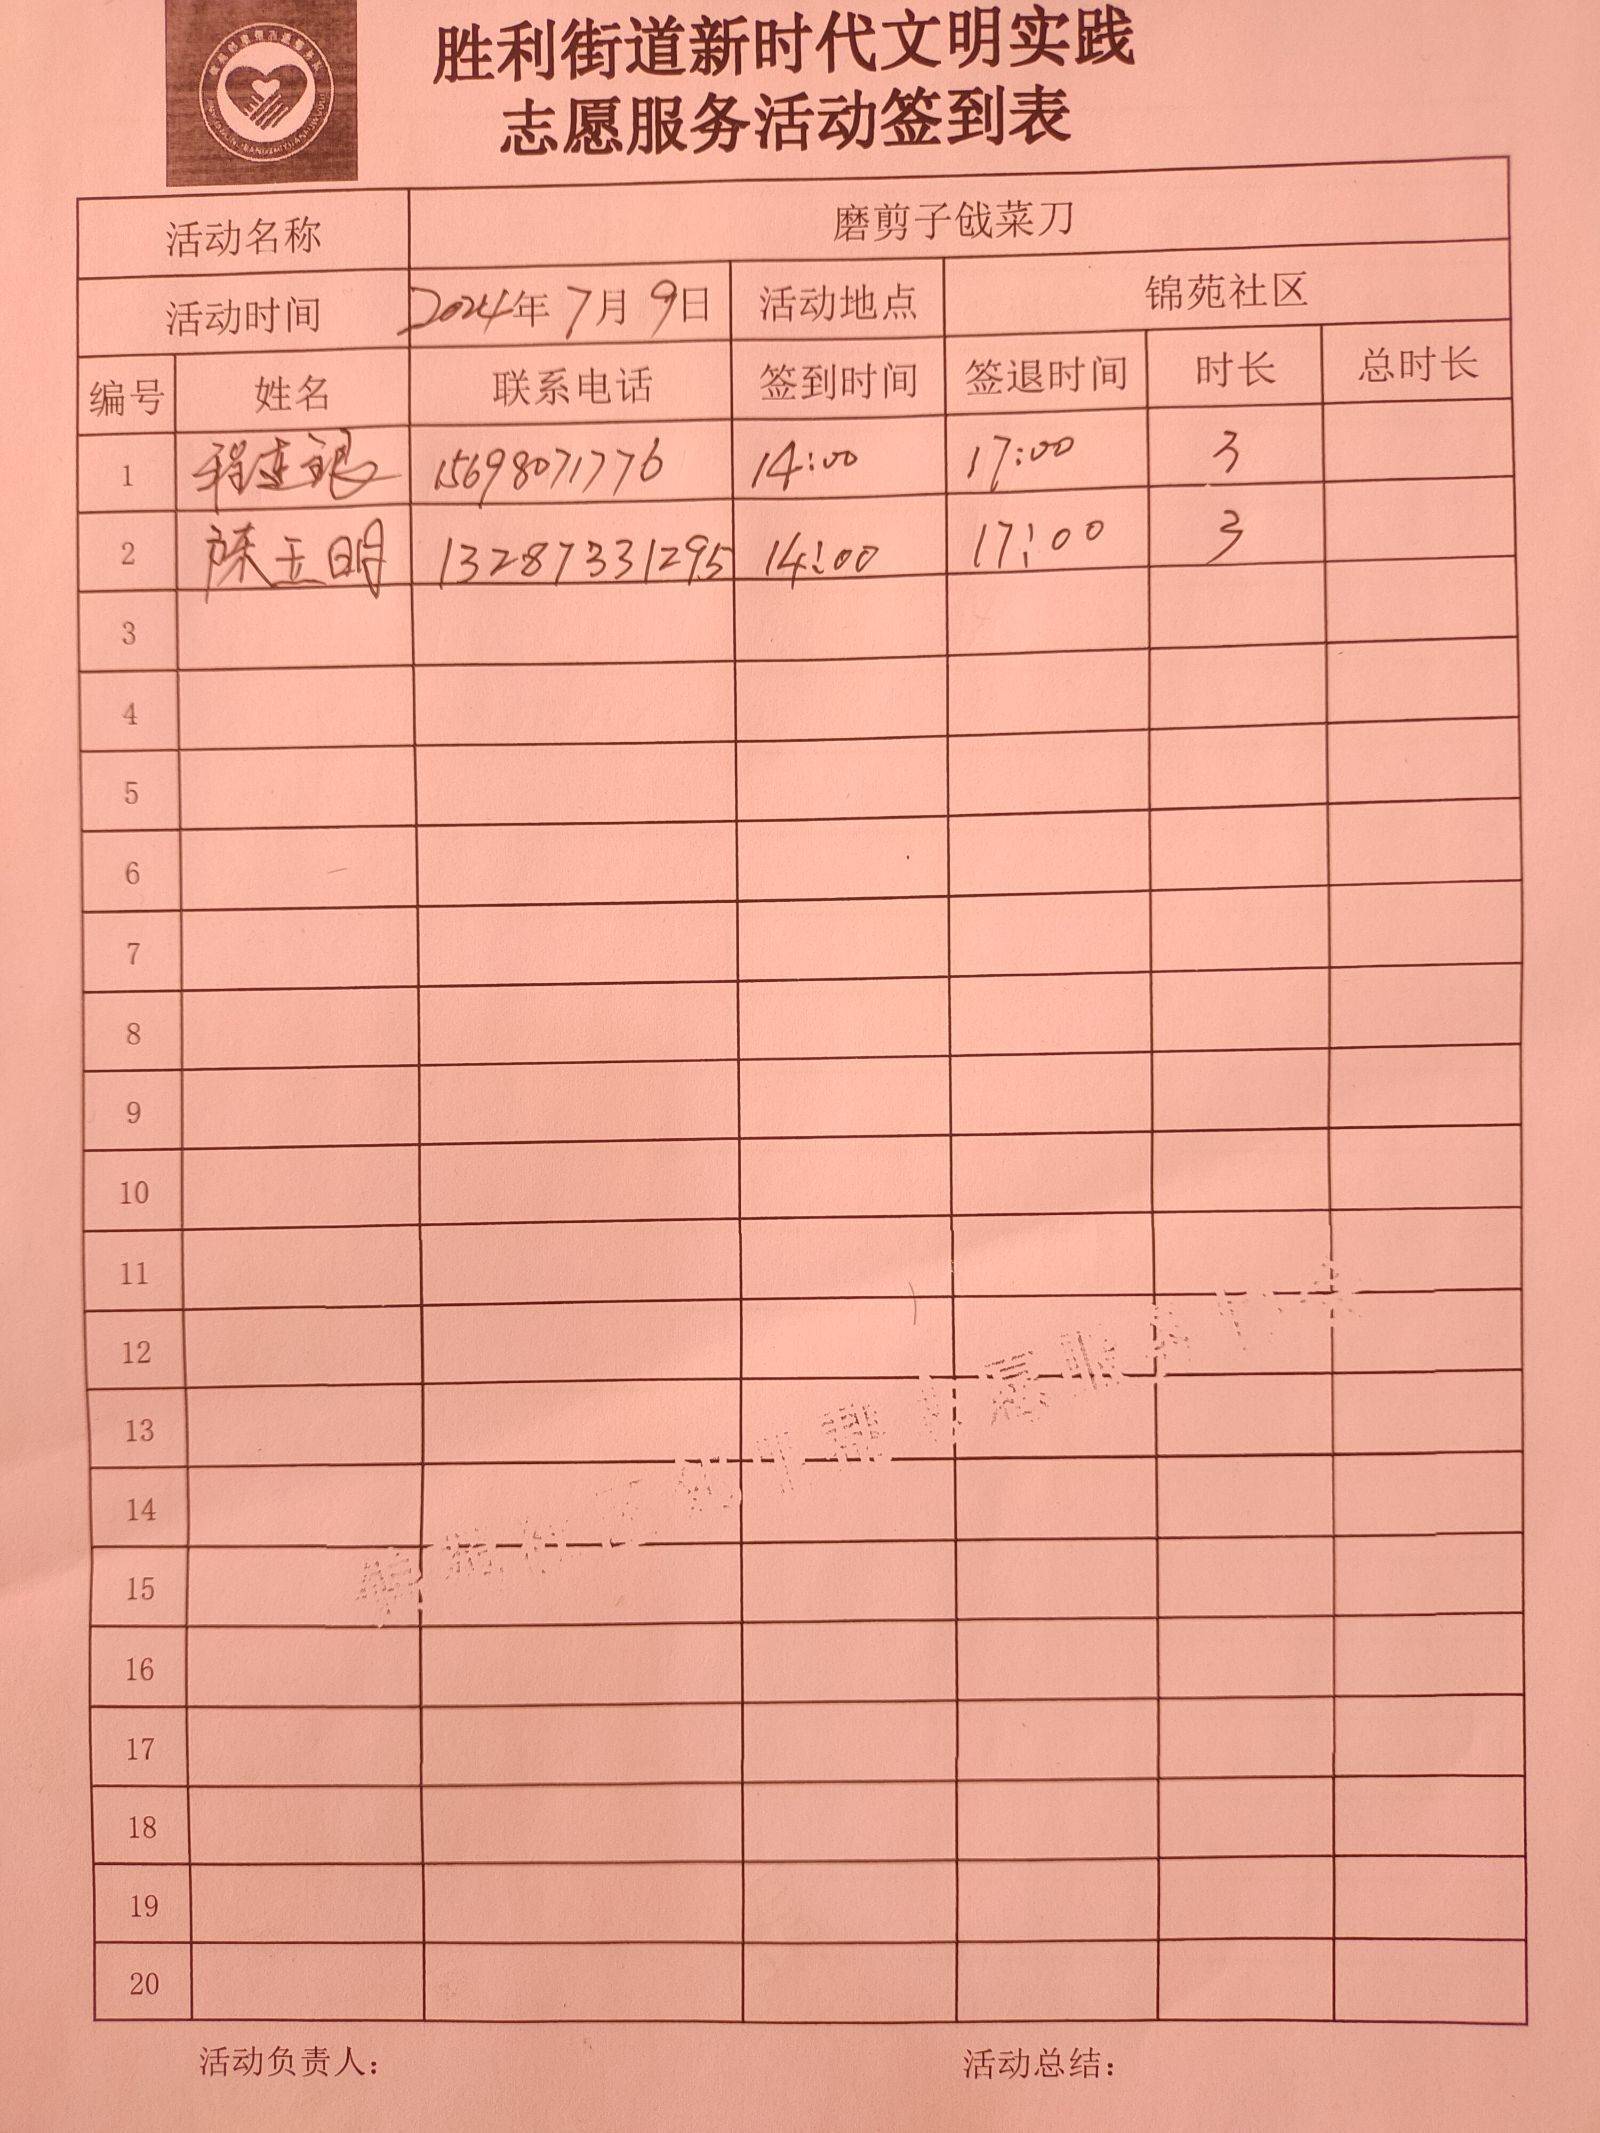 胜利街道新时代文明实践
志愿服务活动签到表
活动名称 磨剪子戗菜刀
活动时间 2024年7月9日 活动地点 锦苑社区
编号 姓名 联系电话 签到时间 签退时间 时长 总时长
1 程连银 15698071776 14:00 17:00 3
2 陈玉明 13287331295 14:00 17:00 3
3
4
5
6
7
8
9
10
11
12
13
14
15
16
17
18
19
20
活动负责人： 活动总结：